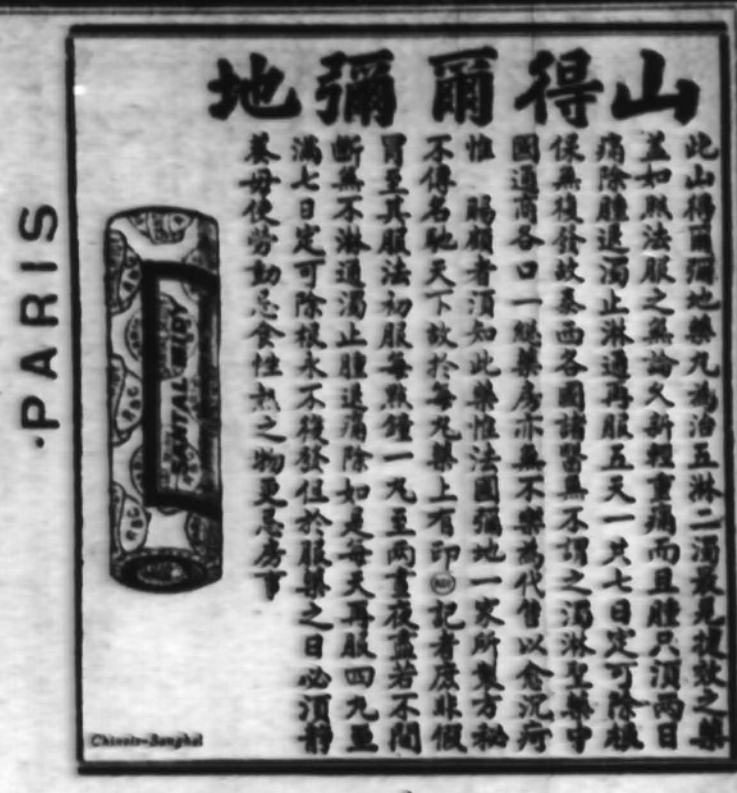 山得爾彌地
此山得爾彌地藥丸為治五淋二濁最見捷效之藥
蓋如照法服之無論久新輕重痛而且腫只須兩日
痛除腫退濁止淋通再服五天一共七日定可除根
保無復發故泰西各國諸醫無不謂之濁淋聖藥中
國通商各口一總藥房亦無不樂為代售以愈沉疴
惟 賜顧者須知此藥惟法國彌地一家所製方秘
不傳名馳天下故於每丸藥上有印MIDY記者庶非假
冒至其服法初服每點鐘一丸至兩晝夜盡若不間
斷無不淋通濁止腫退痛除如是每天再服四丸至
滿七日定可除根永不復發但於服藥之日必須靜
養毋使勞動忌食性熱之物更忌房事
SANTAL MIDY
Chinois-Sanghaï
PARIS